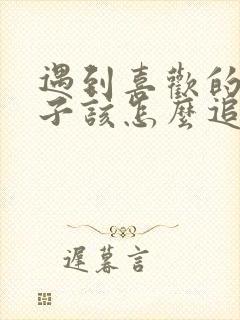 遇到喜歡的
子該怎麼追
遲暮言